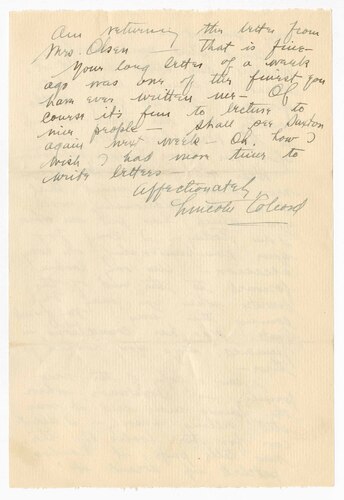 Am returning the letter from
Mrs. Olsen — that is fine —
Your long letter of a week
ago was one of the finest you
have ever written me — Of
course it's fun to lecture to
nice people — Shall see
again next week — Oh, how I
wish I had more time to
write letters —
Affectionately,
Lincoln Colcord